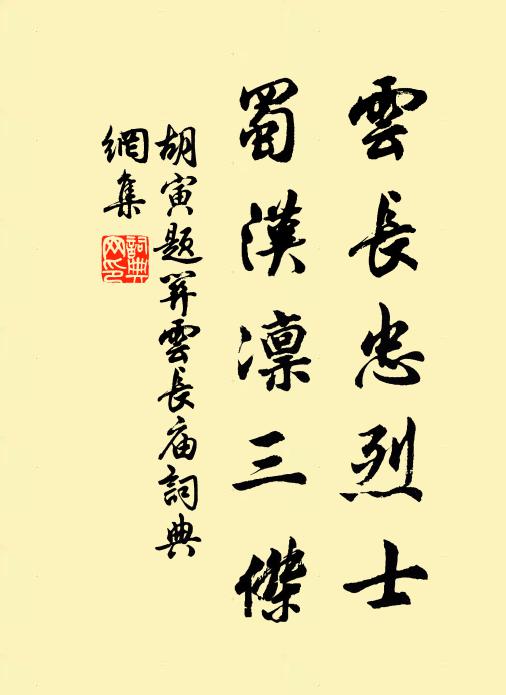 雲長忠烈士
蜀漢凛三傑
胡寅题関雲長庙詞典
網集
詞典
网印